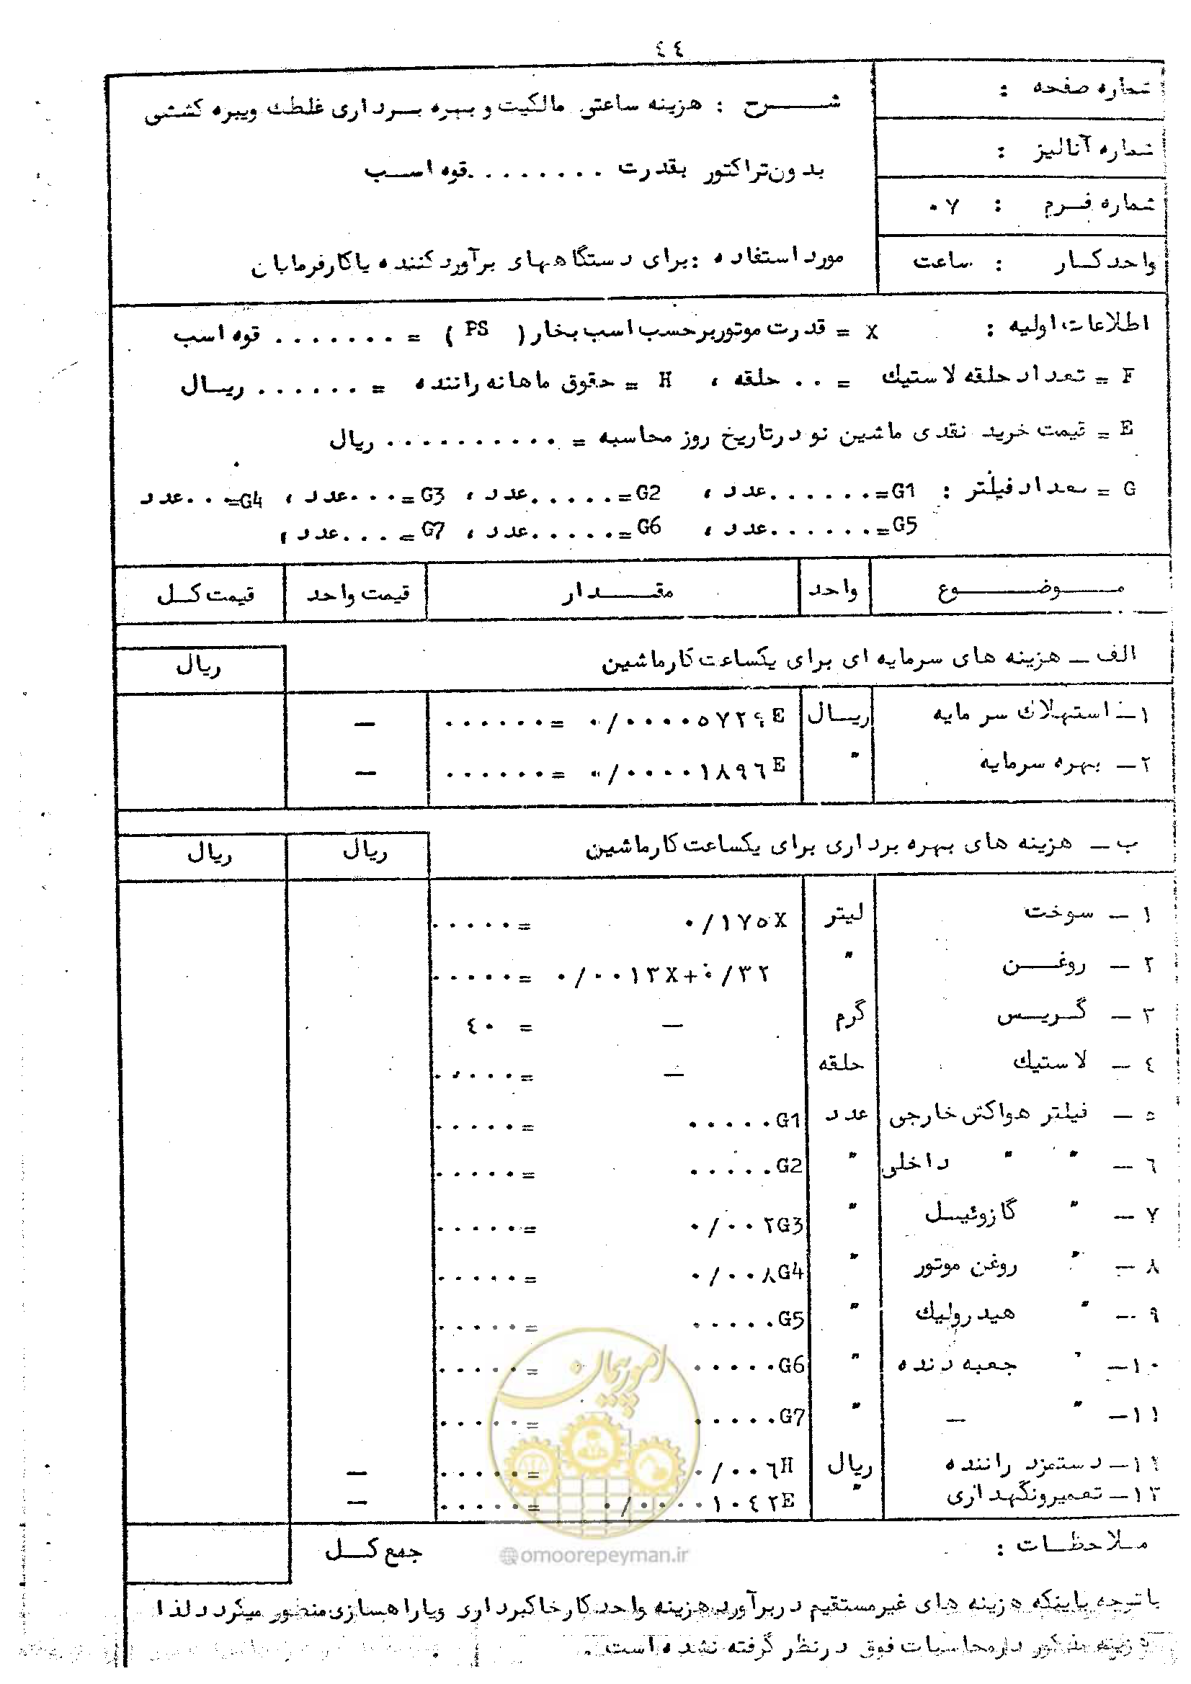 ٤٤
شماره صفحه :
شماره آنالیز :
شماره فرم : ۰۷
واحد کار : ساعت
شرح : هزینه ساعتی مالکیت و بهره برداری غلطک ویبره کششی
بدون تراکتور بقدرت . . . . . . . . قوه اسب
مورد استفاده : برای دستگاههای برآورد کننده یا کارفرمایان
اطلاعات اولیه : X = قدرت موتور برحسب اسب بخار ( PS ) = . . . . . . . قوه اسب
F = تعداد حلقه لاستیک = . . حلقه ، H = حقوق ماهانه راننده = . . . . . . ریال
E = قیمت خرید نقدی ماشین نو در تاریخ روز محاسبه = . . . . . . . . . . ریال
G = تعداد فیلتر : G1= . . . . . . . عدد ، G2= . . . . . عدد ، G3= . . . عدد ، G4= . . . عدد
G5= . . . . . . . عدد ، G6= . . . . . عدد ، G7= . . . عدد ،
موضوع واحد مقدار قیمت واحد قیمت کل
الف ـ هزینه های سرمایه ای برای یکساعت کار ماشین ریال
۱ـ استهلاک سرمایه ریال ۰/۰۰۰۰٥۷۲۹E = . . . . . . —
۲ـ بهره سرمایه " ۰/۰۰۰۰۱۸۹٦E = . . . . . . —
ب ـ هزینه های بهره برداری برای یکساعت کار ماشین ریال ریال
۱ ـ سوخت لیتر ۰/۱۷٥X = . . . . .
۲ ـ روغن " ۰/۰۰۱۳X+۰/۳۲ = . . . . .
۳ ـ گریس گرم — = ٤۰
٤ ـ لاستیک حلقه — = . . . . .
٥ ـ فیلتر هواکش خارجی عدد . . . . . G1 = . . . . .
٦ ـ " " داخلی " . . . . . G2 = . . . . .
۷ ـ " گازوئیل " ۰/۰۰۲G3 = . . . . .
۸ ـ " روغن موتور " ۰/۰۰۸G4 = . . . . .
۹ ـ " هیدرولیک " . . . . . G5 = . . . . .
۱۰ـ " جعبه دنده " . . . . . G6 = . . . . .
۱۱ـ " — " . . . . . G7 = . . . . .
۱۲ـ دستمزد راننده ریال ۰/۰۰٦H = . . . . . —
۱۳ـ تعمیر و نگهداری " ۰/۰۰۰۰۱۰٤۲E = . . . . . —
امور پیمان
@omoorepeyman.ir
ملاحظات : جمع کل
با توجه باینکه هزینه های غیرمستقیم در برآورد هزینه واحد کار خاکبرداری و یا راهسازی منظور میگردد لذا
هزینه مذکور در محاسبات فوق در نظر گرفته نشده است .